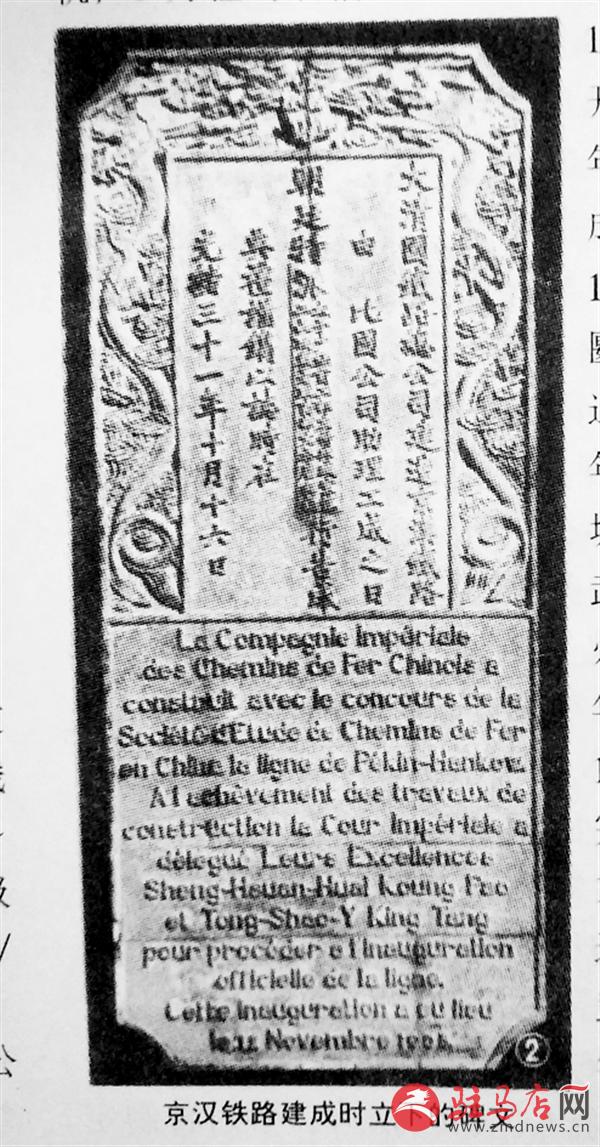 大清國鐵路總公司建造京漢鐵路
由 比國公司助理工成之日
光緒三十一年十月十六日
La Compagnie Impériale
des Chemins de Fer Chinois a
construit avec le concours de la
Société d'Etude de Chemins de Fer
en Chine la ligne de Pékin-Hankow.
A l achèvement des travaux de
construction la Cour Impériale a
délégué Leurs Excellences
Sheng-Hsuan-Huai Koung Pao
et Tong-Shao-Y King Tang
pour procéder a l inauguration
officielle de la ligne.
Cette inauguration a eu lieu
le Novembre
②
京汉铁路建成时立下的碑文
驻马店网
www.zmdnews.cn